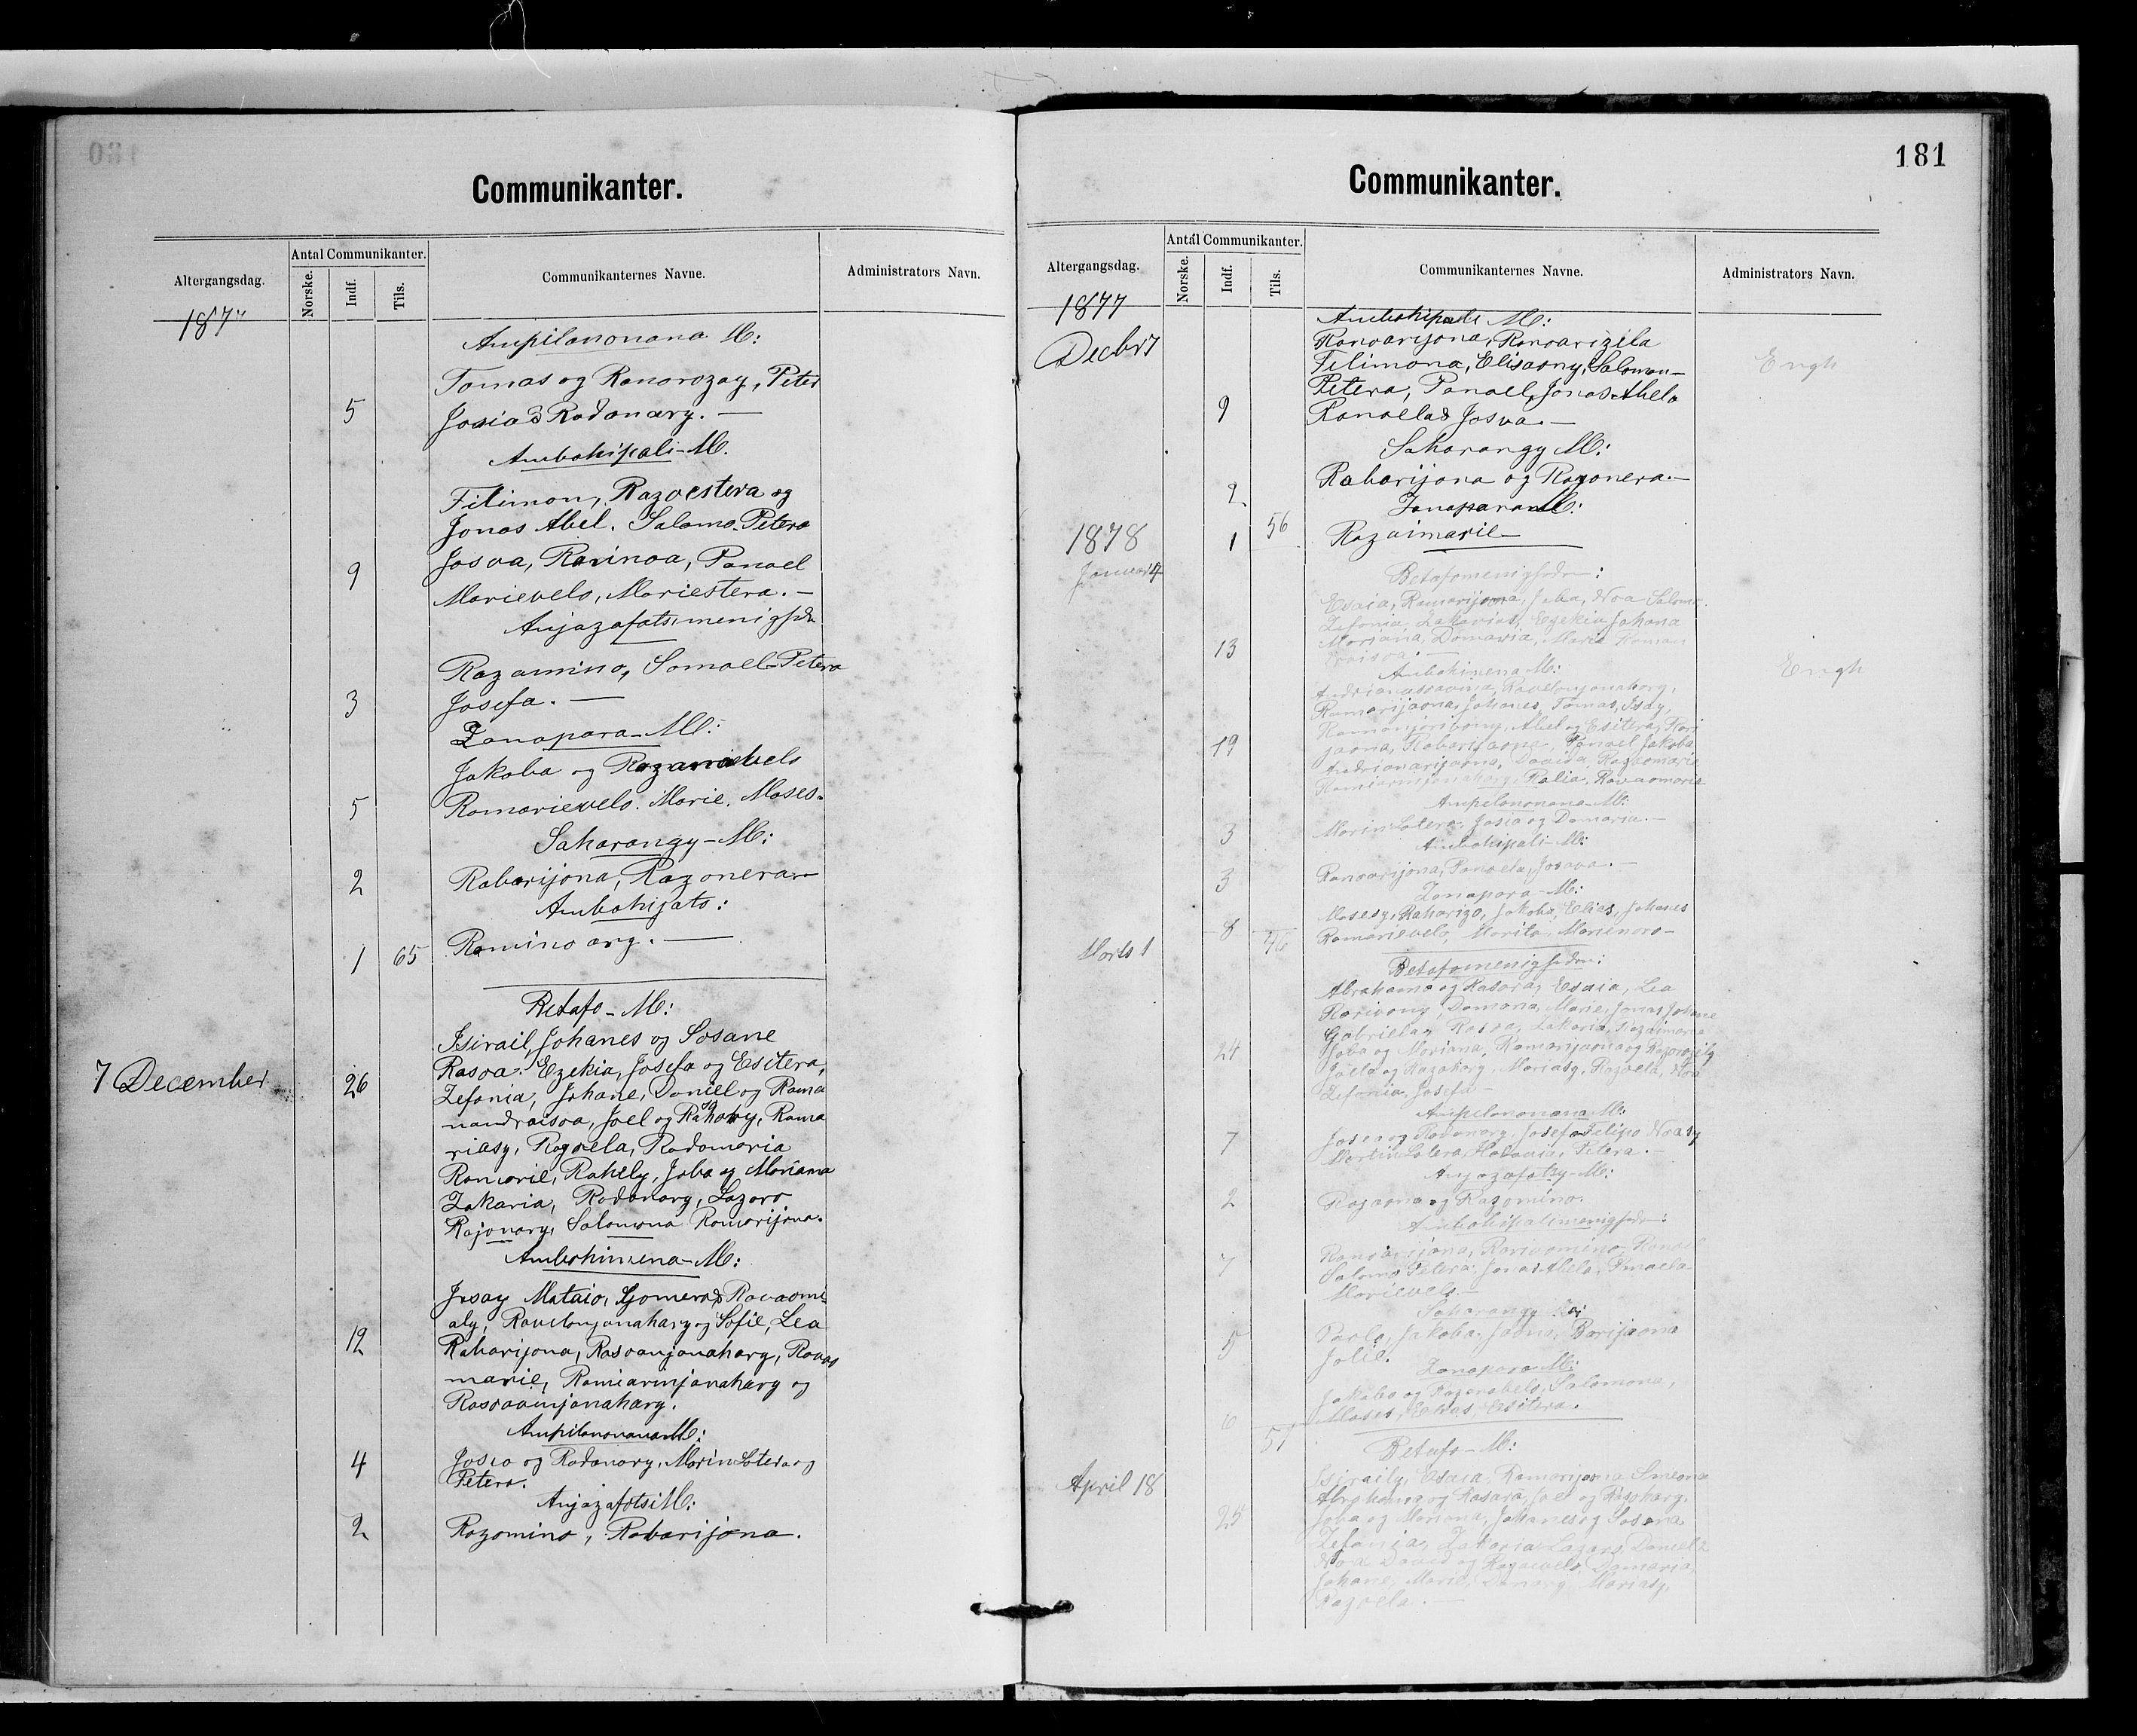 Communikanter.
Altergangsdag.
Antal Communikanter.
Norske.
Indf.
Tils.
Communikanternes Navne.
Administrators Navn.
187"
Ampilanonana M:
Tomas og Ranorozay, Peter
5 Josia & Radanary. —
Ambohipali-M.
Filimon, Razoestera og
Jonas Abel. Salomo. Petera
9 Josva, Rarinoa, Panoel
Marievelo, Mariestera. —
Anjazafotsimenigheden
Razamino, Samoel-Petera
3 Josefa. —
Zanapara-M:
Jakoba og Razanabelo
5 Ramarievelo. Marie. Moses.
Saharangy-M:
2 Rabarijona, Razonera—
Ambohijato:
1 65 Ramino ary. —
Betafo-M:
Isirail, Johanes og Sosane
7 December 26 Rasoa. Ezekia, Josefa og Esitera,
Zefonia, Johane, Daniel og Rama
nandraisoa, Joel og Razahary, Rama
riasy, Razoela, Radamaria
Ramarie, Rakely, Joba og Moriana
Zakaria, Radanary, Lazaro
Rajonary, Salomona Ramarijona.
Ambohimena-M:
Jesay Mataio, Gomera & Ravaomi
aly, Ravelonjanahary og Sofie, Lea
12 Rabarijona, Rasoanjanahary, Ravao
marie, Ramiarinjanahary og
Rasoaanjanahary.
Ampilanonana M:
4 Josia og Radanary, Marin Lotera og
Petera.
AnjazafotsiM:
2 Razamino, Rabarijona.
181
Communikanter.
Altergangsdag.
Antal Communikanter.
Norske.
Indf.
Tils.
Communikanternes Navne.
Administrators Navn.
1877
Ambohipali M:
Decbr 7 Ranoarijona, Ranoarizela
Filimona, Elisaony, Salomon— Engh
Petera, Panoel, Jonas Abela
9 Ranoela & Josva. —
Saharangy M:
2 Rabarijona og Razonera. —
Zanapara M:
1878 1 56 Razaimarie—
Januar 4 Betafomenigheden:
Esaia, Ramarijaona, Joba, Noa Salomo
Zefonia, Zakarias, Ezekia Johana
13 Moriana, Damaria, Maria Raman
draisoa. —
Ambohimena M: Engh
Andrianasoavina, Ravelonjanahary,
Ramarijaona, Johanes, Tomas, Jsay,
Abel og Esitera,
19 jaona, Rabarijaona, Panoel Jakoba
Andrianarijaona, Davida, Razaomarie
Ramiarinjanahary, Ralia, Ravaomarie
Ampilanonana-M:
3 Marin Lotera, Josia og Damaria. —
Ambohipali-M:
3 Ranoarijona, Panoela, Josva. —
Zanapara-M:
Mosesy, Raharizo, Jakoba, Elias, Johanes
8 46 Ramarievelo, Marita, Marinoro—
Marts 1 Betafomenigheden:
Abrahama og Rasara, Esaia, Lea
Rarivony, Damaria, Marie, Jonas Johane
Gabriela, Rasoa, Zakaria, Razaimaria
24 Joba og Moriana, Ramarijaona og
Joela og Razahary, Mariasy, Razoela, Noa
Zefonia, Josefa —
Ampilanonana M:
7 Josia og Radanary, Josefa Filipo Noasy
Martin Lotera, Petera. —
Anjazafotsy-M:
2 Rajaona og Razamino.
Ambohipalimenigheden:
7 Ranoarijona, Rarivomino,
Salomo Petera, Jonas Abela,
Marievelo —
Saharangy M:
5 Paolo, Jakoba, Barijaona
Jolie.
Zanapara-M:
Jakoba og Razanabelo, Salomona,
6 57 Moses, Elias, Esitera.
Betafo-M:
April 18 Isiraily, Esaia, Ramarijaona Simeona
Abrahama og Rasara, Joel og Razahary,
25 Joba og Moriana, Johanes og Sosana
Zefonia, Zakaria Lazaro Daniel
Noa David og Razaivelo, Damaria,
Johane, Marie, Danary, Mariasy,
Razoela. —